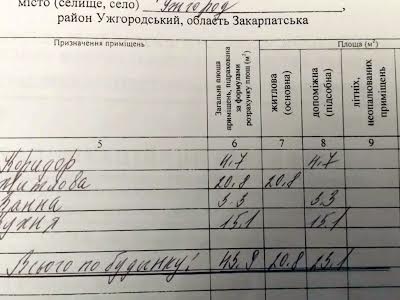 місто (селище, село) Ужгород,
район Ужгородський, область Закарпатська
Призначення приміщень
Загальна площа приміщень, підрахована за формулами розрахунку площ (м²)
Площа (м²)
житлова (основна)
допоміжна (підсобна)
літніх, неопалюваних приміщень
5 6 7 8 9
Коридор 4.7 4.7
житлова 20,8 20,8
Ванна 3.3 3.3
кухня 15.1 15.1
Всього по будинку: 43,9 20,8 23,1